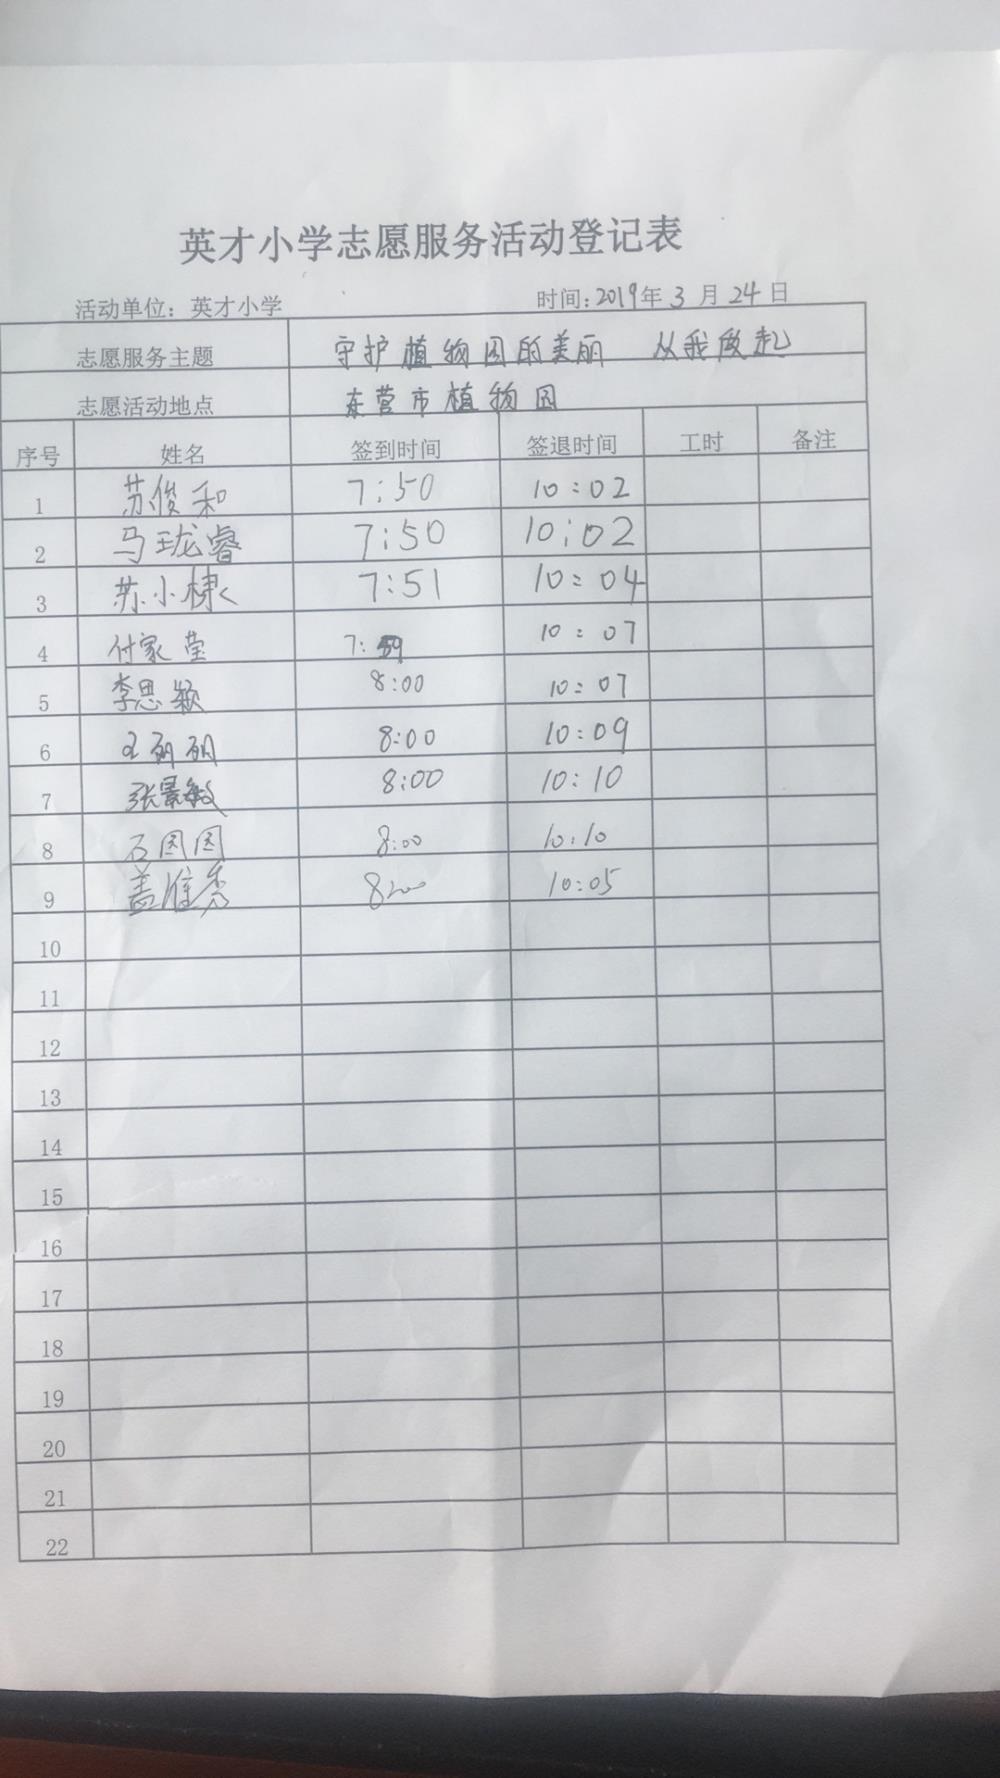 英才小学志愿服务活动登记表
活动单位：英才小学 时间：2019年3月24日
志愿服务主题 守护植物园的美丽 从我做起
志愿活动地点 东营市植物园
序号 姓名 签到时间 签退时间 工时 备注
1 苏俊和 7:50 10:02
2 马珑睿 7:50 10:02
3 苏小棣 7:51 10:04
4 付家莹 7:59 10:07
5 李思颖 8:00 10:07
6 王丽丽 8:00 10:09
7 张景敏 8:00 10:10
8 石图图 8:00 10:10
9 盖维秀 8:00 10:05
10
11
12
13
14
15
16
17
18
19
20
21
22